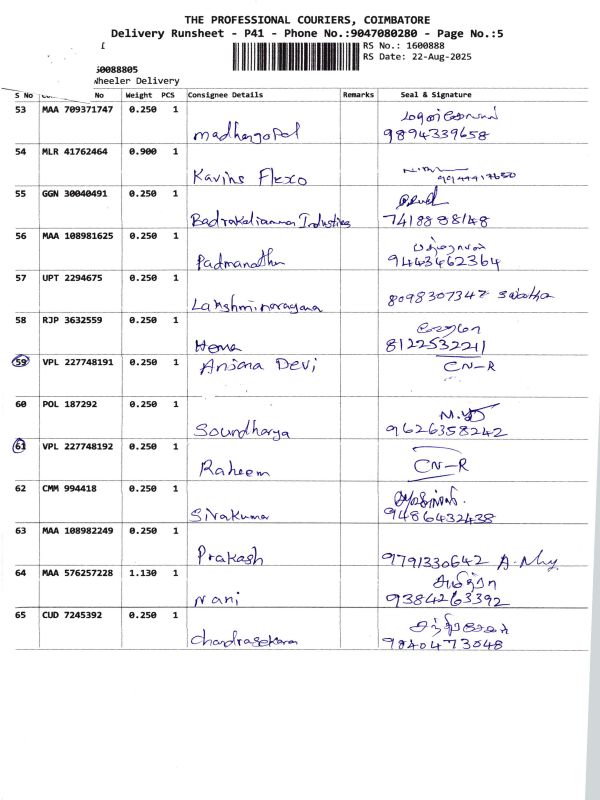 THE PROFESSIONAL COURIERS, COIMBATORE
Delivery Runsheet - P41 - Phone No.:9047080280 - Page No.:5
RS No.: 1600888
RS Date: 22-Aug-2025
50088805
Wheeler Delivery
S No No Weight PCS Consignee Details Remarks Seal & Signature
53 MAA 709371747 0.250 1
madhangopal 9894339658
54 MLR 41762464 0.900 1
Kavins Flexo
55 GGN 30040491 0.250 1
Badrakaliamma Industries 7418898148
56 MAA 108981625 0.250 1
Padmanathn 9443462364
57 UPT 2294675 0.250 1
Lakshminarayana 8098307347
58 RJP 3632559 0.250 1
Hema 8122532211
59 VPL 227748191 0.250 1
Anjana Devi CN-R
60 POL 187292 0.250 1
Soundharya 9626358242
61 VPL 227748192 0.250 1
Raheem CN-R
62 CMM 994418 0.250 1
Sivakumar 9486432438
63 MAA 108982249 0.250 1
Prakash 9791330642
64 MAA 576257228 1.130 1
சுமித்ரா
Mani 9384263392
65 CUD 7245392 0.250 1
சந்திரசேகர்
Chandrasekaran 9840473048